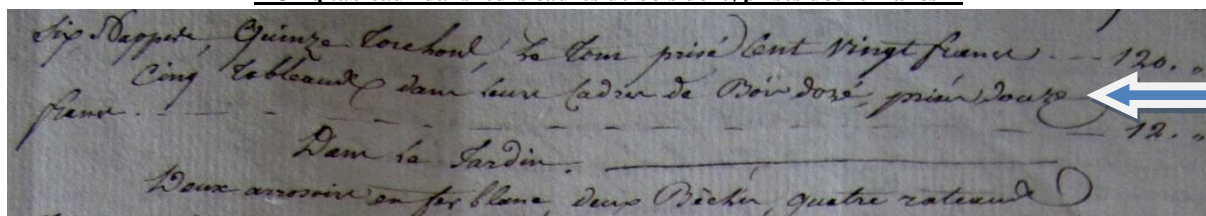 Six Nappes, Quinze Torchons, Le Tour prisé Cent Vingt francs . -- 120. "
Cinq Tableaux dans leurs Cadres de Bois doré, prisés douze
francs . - - - - - - - - - 12. "
Dans Le Jardin.
Deux arrosoirs en fer blanc, deux Bèches, quatre rateaux